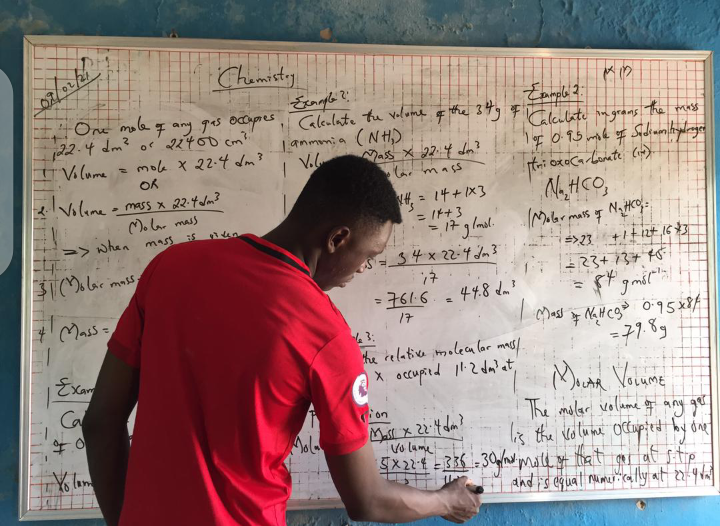 09/02/21
Chemistry
One mole of any gas occupies
22.4 dm³ or 22400 cm³
1 Volume = mole × 22.4 dm³
OR
2 Volume = mass × 22.4 dm³
Molar mass
=> when mass is given
3 Molar mass
4 Mass =
Exam
Ca
Volum
Example 2:
Calculate the volume of the 34g of
ammonia (NH₃)
Volu Mass × 22.4 dm³
lar mass
NH₃ = 14 + 1×3
= 14+3
= 17 g/mol.
= 34 × 22.4 dm³
17
= 761.6 = 44.8 dm³
17
3:
the relative molecular mass
X occupied 11.2 dm³ at
ion
Mass × 22.4 dm³
Volume
5 × 22.4 = 336 = 30g/mol.
Example 2:
Calculate in grams the mass
of 0.95 mole of Sodium hydrogen
trioxocarbonate (iv).
Na₂HCO₃
Molar mass of Na₂HCO₃=
=> 23 + 1 + 12 + 16×3
= 23 + 13 + 48
= 84 gmol⁻¹
Mass of Na₂HCO₃ => 0.95 × 84
= 79.8g
MOLAR VOLUME
The molar volume of any gas
is the volume occupied by one
mole of that gas at s.t.p
and is equal numerically at 22.4 dm³